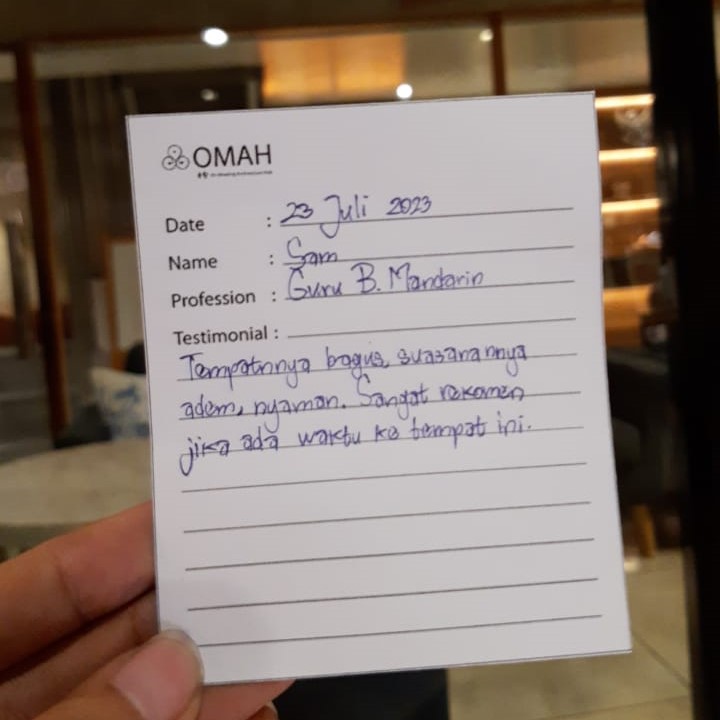 OMAH
Date : 23 Juli 2023
Name : Sam
Profession : Guru B. Mandarin
Testimonial :
Tempatnnya bagus, suasanannya
adem, nyaman. Sangat rekomen
jika ada waktu ke tempat ini.